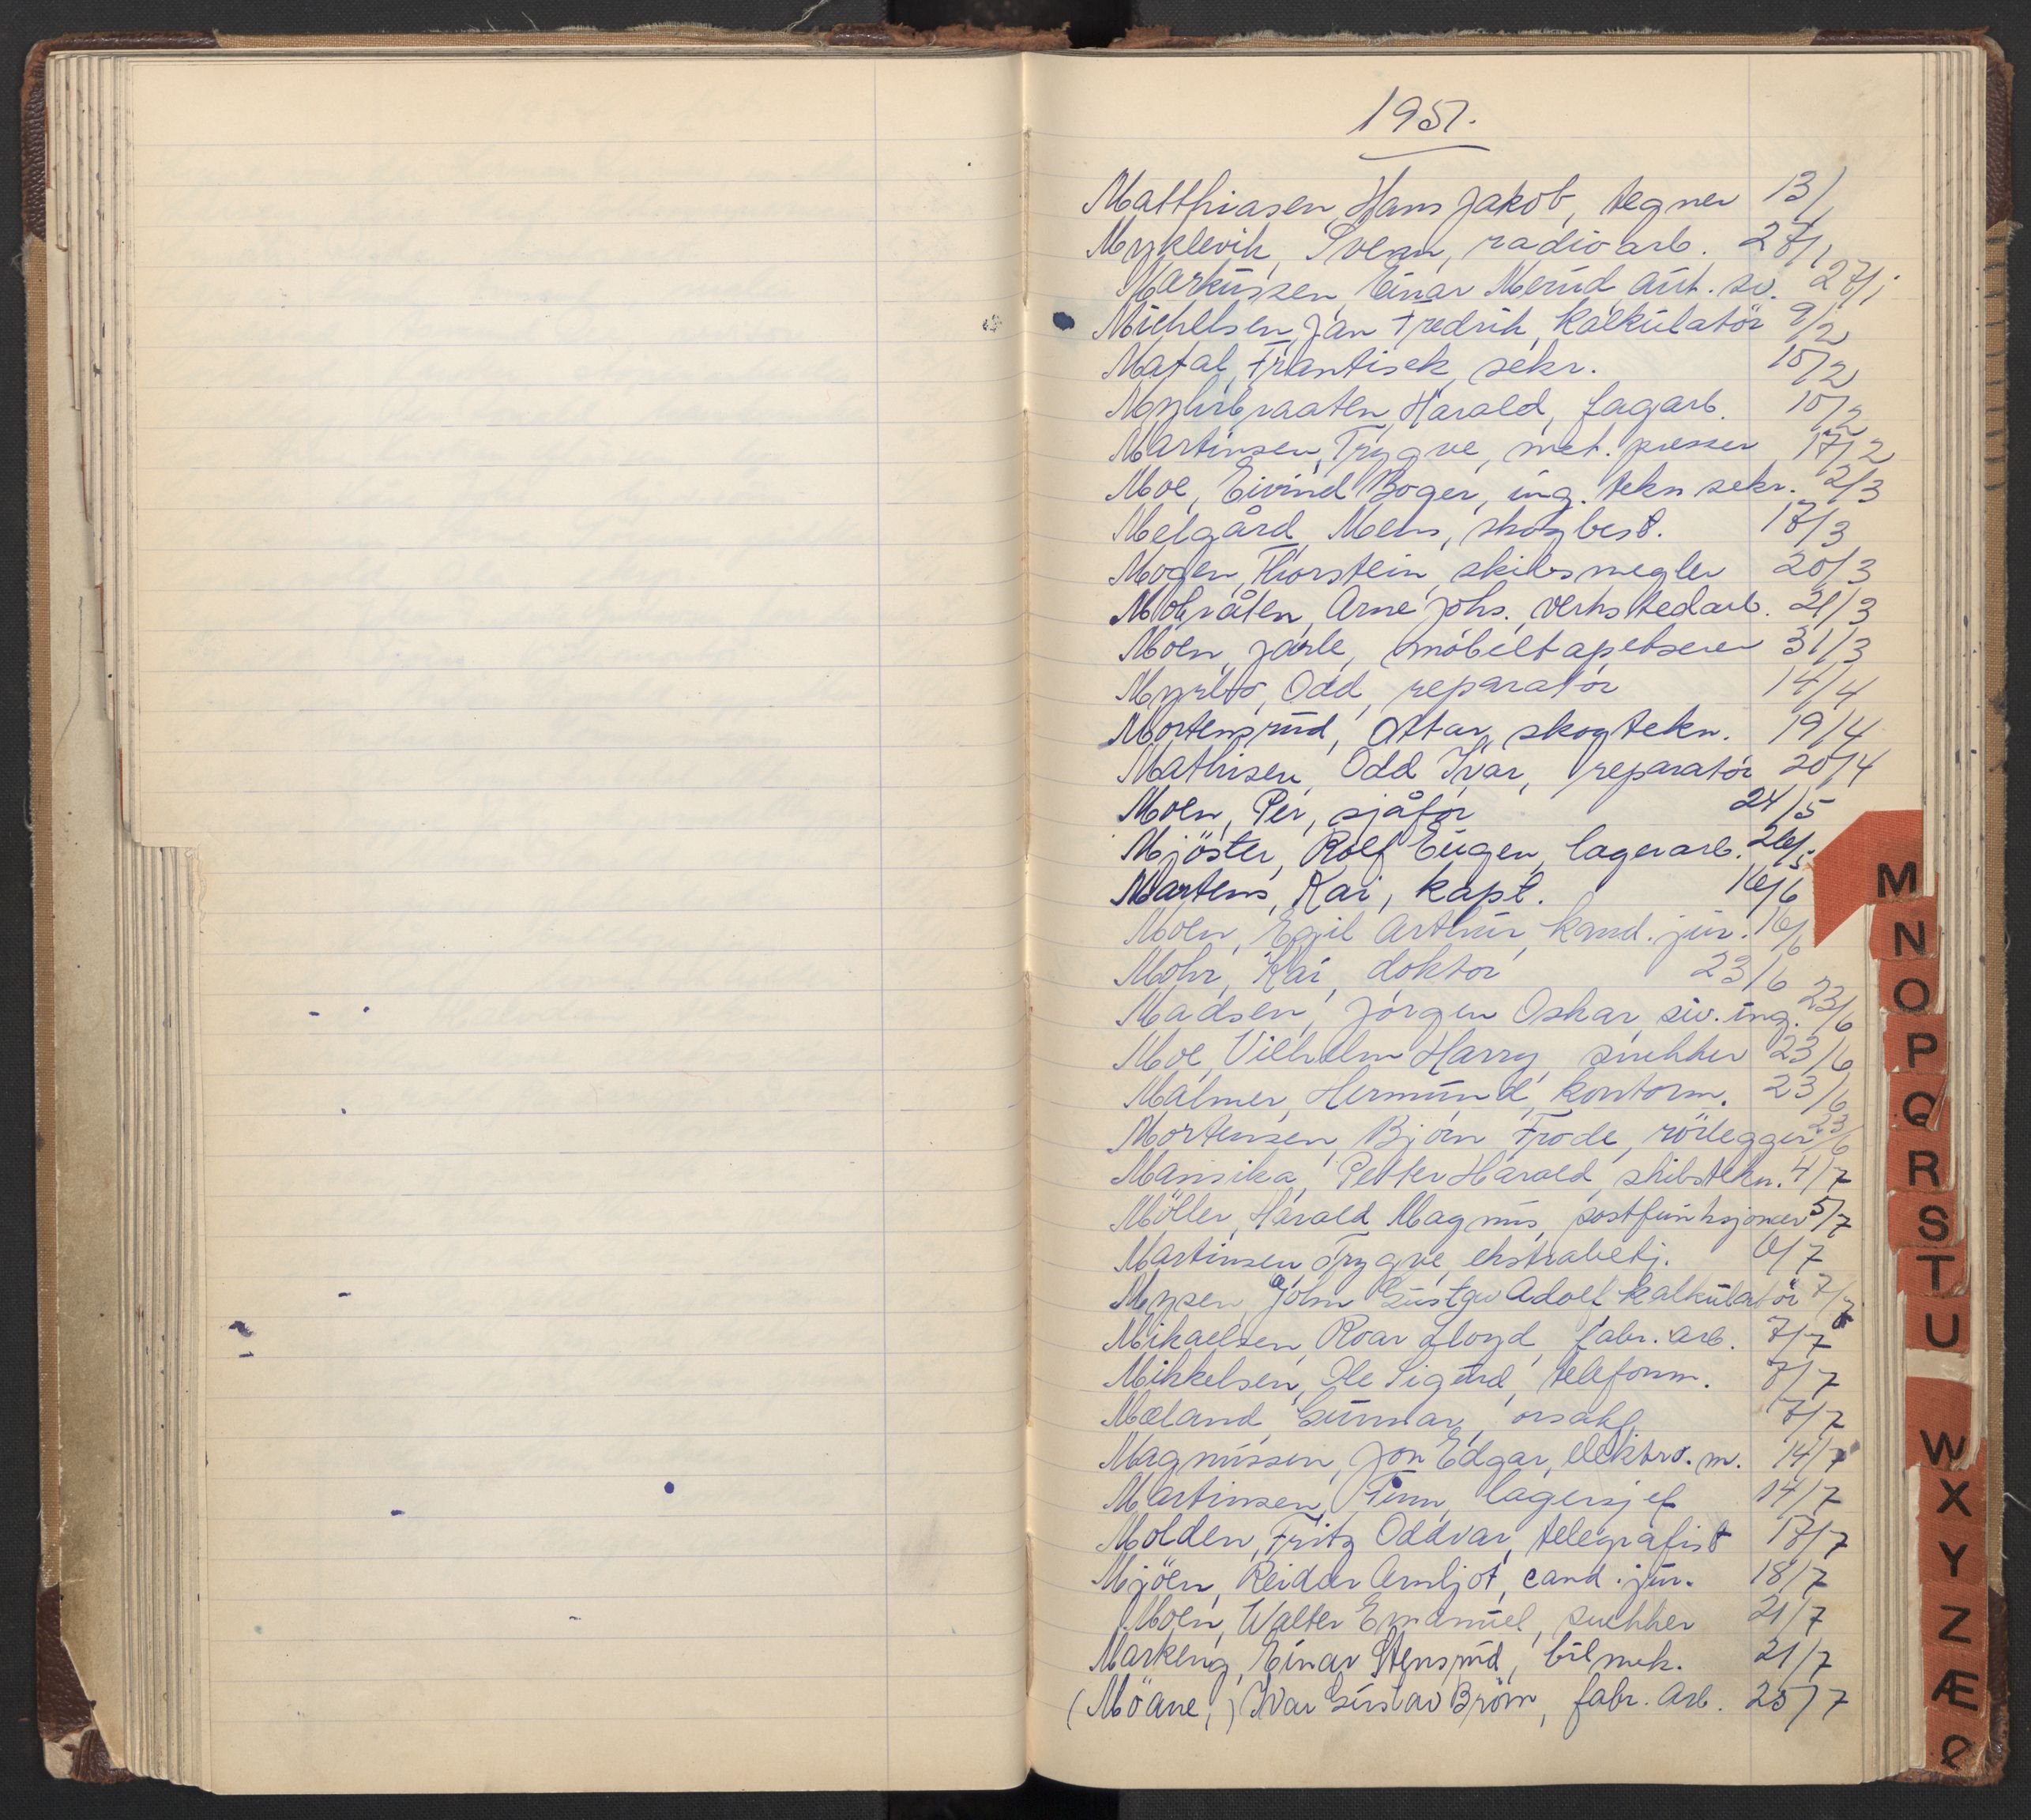 1951.
Matthiasen, Hans Jakob, tegner 13/1
Myklevik, Svenn, radioarb. 27/1
Markussen, Einar Merud, aut. sv. 27/1
Michelsen, Jan Fredrik, kalkulatör 9/2
Matal, Frantisek, sekr. 10/2
Myhrbraaten, Harald, fagarb. 10/2
Martinsen, Trygve, met. presser 17/2
Moe, Eivind Boger, ing. tekn sekr. 2/3
Melgård, Mens, skogbest. 17/3
Mogen, Thorstein, skibsmegler 20/3
Mokråten, Arne Johs., verkstedarb. 21/3
Moen, Jarle, møbeltapetserer 31/3
Myrbø, Odd, reparatør 14/4
Mortensrud, Ottar, skogtekn. 19/4
Mathisen, Odd Ivar, reparatør 20/4
Moen, Per, sjåfør 24/5
Mjöster, Rolf Eugen, lagerarb. 26/5
Martens, Kai, kapt. 16/6
Moen, Egil Arthur, kand. jur. 16/6
Mohr, Kai, doktor 23/6
Madsen, Jørgen Oskar, siv. ing. 23/6
Moe, Vilhelm Harry, snekker 23/6
Malmer, Hermund, kontorm. 23/6
Mortensen, Bjørn Frode, rörlegger 23/6
Mansika, Petter Harald, skibstekn. 4/7
Möller, Harald Magnus, postfunksjonær 5/7
Martinsen Trygve, ekstrabetj. 6/7
Mysen, John Gustav Adolf kalkulatör 7/7
Mikaelsen, Roar Lloyd, fabr. arb. 7/7
Mikkelsen, Ole Sigurd, telefonm. 7/7
Mæland, Gunnar, orsakf. 7/7
Magnussen, Jon Edgar, elektro. m. 14/7
Martinsen, Finn, lagersjef 14/7
Molden, Fritz Oddvar, telegrafist 17/7
Mjöen, Reidar Arnljot, cand. jur. 18/7
Moen, Walter Emanuel, snekker 21/7
Markeng, Einar Stensrud, bilmek. 21/7
(Möane,) Ivar Gustav Bröm, fabr. arb. 25/7
M
N
O
P
Q
R
S
T
U
W
X
Y
Z
Æ